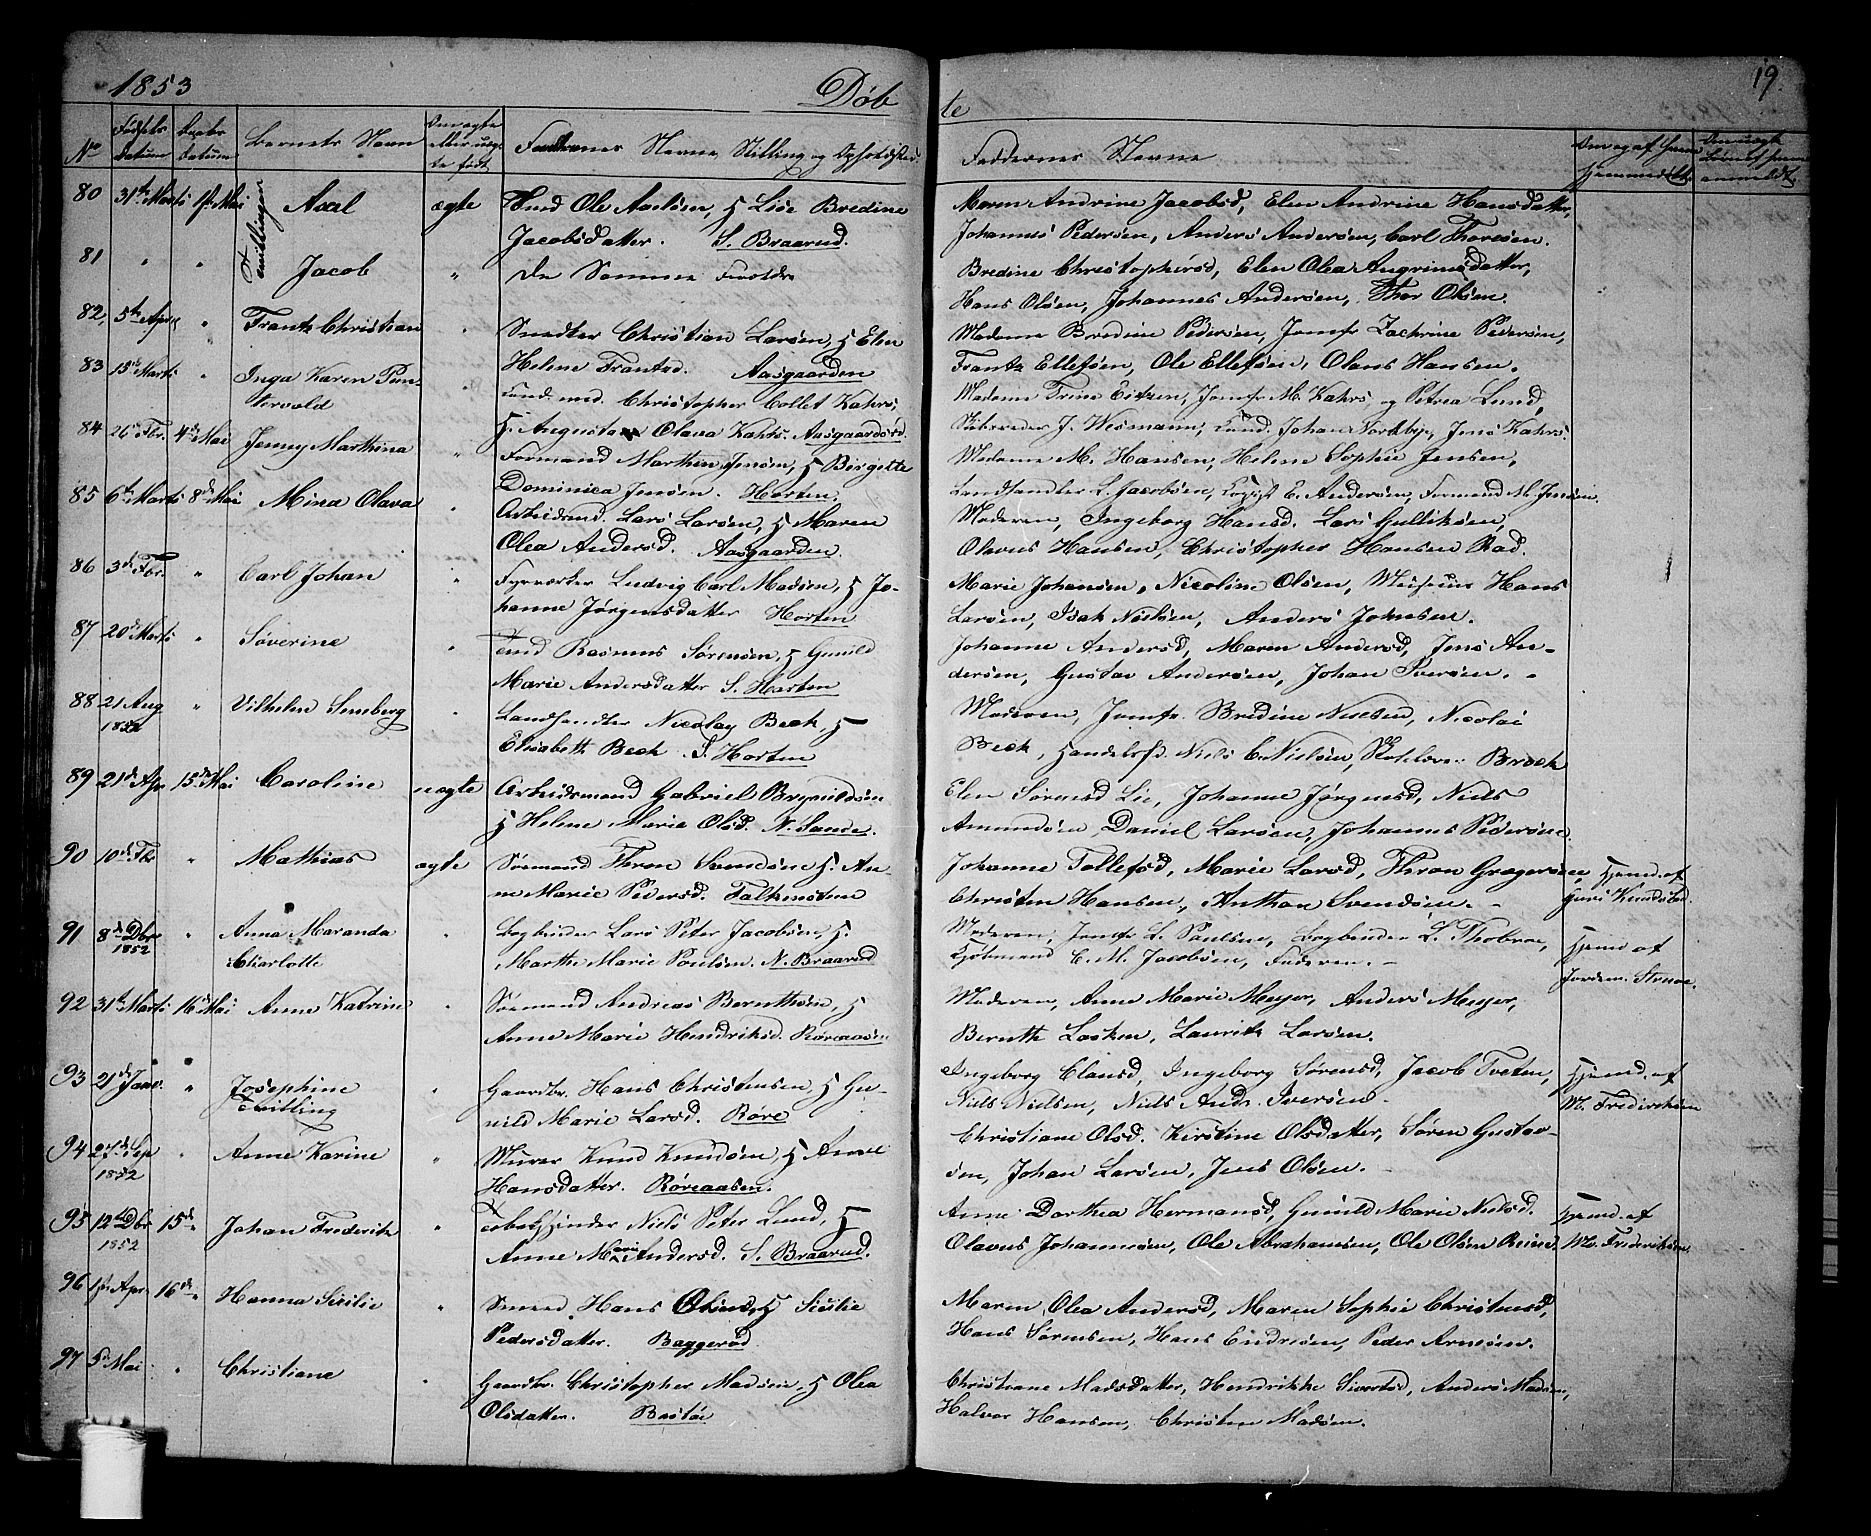 1853
Døb
te
19.
No
Fødsels Datum
Daabs Datum
Barnets Navn
Om ægte eller uægte født
Fædrenes Navne, Stilling og Opholdsted
Faddernes Navne
Om og af hvem Hjemmedøbt
80 31te Marts 1ste Mai Tvillinger Axel ægte Huusmd Ole Axelsen, H Lise Bredine
Jacobsdatter. S. Braarud.
Maren Andrine Jacobsd, Elen Andrine Hansdatter,
Johannes Pedersen, Anders Andersen, Carl Thoresen.
81 " " Jacob " De Samme Forældre
Bredine Christophersd, Elen Olea Angrimsdatter,
Hans Olsen, Johannes Andersen, Thor Olsen.
82, 5te April " Frantz Christian " Smedker Christian Larsen, H Elen
Helene Frantzd. Aasgaarden
Madame Bredine Pedersen, Jomfr Zachrine Pedersen,
Frantz Ellefsen, Ole Ellefsen, Olaus Hansen.
83 15de Marts " Inga Karen Pun-
tervold " Cand. med. Christopher Collet Kahrs,
H. Augusta Olava Kahrs. Aasgaardsd.
Madame Trine Eitzen, Jomfr M. Kahrs, og Petrea Lund,
Skibsreder J. Wesmann, Cand. Johan Norbbye, Jens Kahrs.
84 26 Fbr. 4de Mai Jenny Marthina " Formand Marthin Jensen, H Birgette
Dominica Jensen. Horten.
Madame M. Hansen, Helene Sophie Jensen,
Landhandler L. Jacobsen, E. Andersen, Formand M. Jensen.
85 6te Marts 8de Mai Mina Olava " Arbeidsmd. Lars Larsen, H Maren
Olea Andersd. Aasgaarden.
Moderen, Ingeborg Hansd. Lars Gulliksen,
Olavus Hansen, Christopher Hansen Rød.
86 3de Fbr. " Carl Johan " Fyrværker Ludvig Carl Madsen, H Jo-
hanne Jørgensdatter Horten
Marie Johansen, Nicoline Olsen, Hans
Larsen, Isak Nielsen, Anders Johnsen.
87 20de Marts " Søverine " Huusmd Rasmus Sørensen, H Gunild
Marie Andersdatter S. Horten
Johanne Andersd, Maren Andersd, Jens An-
dersen, Gustav Andersen, Johan Iversen.
88 21 Aug
1852 " Vilhelm Senberg " Landhandler Nicolay Bech, H
Elisabeth Bech S. Horten
Moderen, Jomfr. Bredine Nielsen, Nicolai
Bech, Handelsf. Niels C. Nielsen, Skolelærer Broch
89 21de Apr 15de Mai Caroline uægte Arbeidsmand Gabriel Brynildsen
H Helene Marie Olsd. N. Sande.
Elen Sørensd Lie, Johanne Jørgensd, Niels
Amundsen Daniel Larsen, Johannes Pedersen.
90 10de Fbr " Mathias ægte Sømand Thron Svendsen H. An-
ne Marie Pedersd. Falkensteen
Johanne Tollefsd, Marie Larsd, Thron Grægersen,
Christen Hansen, Anthon Svendsen. -
Hjemd. af
Guri Knudsd.
91 8de Dbr
1852 " Anna Maranda
Charlotte " Bogbinder Lars Peter Jacobsen, H.
Marthe Marie Poulsen. N. Braarud
Moderen, Jomfr L. Paulsen, Bogbinder L. Thobroe,
Kjøbmand C. M. Jacobsen, Faderen. -
Hjemd af
Jordem. Struve.
92 31te Marts 16de Mai Anne Katrine " Sømand Andreas Bernthsen, H
Anne Marie Hendriksd. Røreaasen
Moderen, Anne Marie Meyer, Anders Meyer,
Bernth Løcken, Lauritz Larsen.
93 21de Janv. " Josephine
Tvilling " Gaardbr. Hans Christensen, H Gu-
nild Marie Larsd. Røre
Ingeborg Clausd, Ingeborg Sørensd, Jacob Tveten,
Niels Nielsen, Niels Andr. Iversen.
Hjemd. af
M. Frederiksen
94 27de Sep
1852 " Anne Karine " Murer Knud Knudsen, H Anne
Hansdatter. Røreaasen.
Christiane Olsd. Kirstine Olsdatter, Søren Gustav-
sen, Johan Larsen, Jens Olsen.
95 12te Dbr
1852 15de " Johan Frederik " Tobakspinder Niels Peter Lund, H
Anne Marie Andersd. S. Braarud.
Anne Dorthea Hermansd, Gunild Marie Nielsd.
Olavus Johannesen, Ole Abrahamsen, Ole Olsen Reine.
Hjemd. af
M. Frederiksen
96 1ste Apr. 16de " Hanna Sicilie " Smed Hans Olsen, H Sicilie
Pedersdatter. Baggerød
Maren Olea Andersd, Maren Sophie Christensd,
Hans Sørensen, Hans Endresen, Peder Arnesen.
97 5te Mai " Christiane " Gaardbr. Christopher Madsen, H Olea
Olsdatter. Bastøe
Christiane Madsdatter, Hendrikke Sivertsd, Anders Madsen,
Halvor Hansen, Christen Madsen.